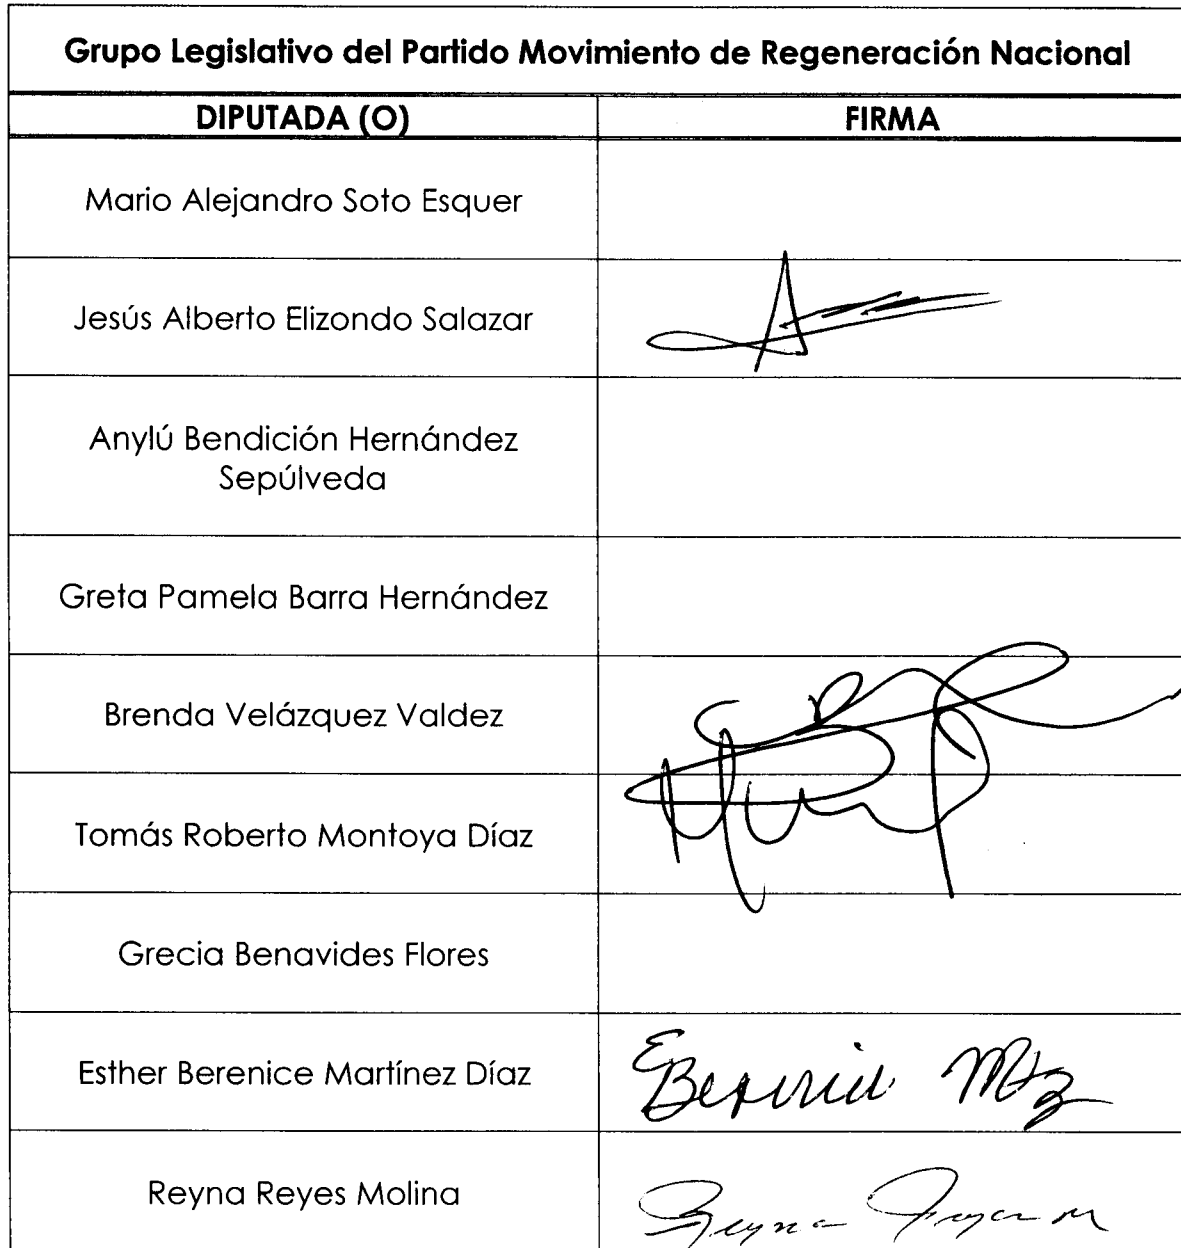 Grupo Legislativo del Partido Movimiento de Regeneración Nacional
DIPUTADA (O) FIRMA
Mario Alejandro Soto Esquer
Jesús Alberto Elizondo Salazar
Anylú Bendición Hernández
Sepúlveda
Greta Pamela Barra Hernández
Brenda Velázquez Valdez
Tomás Roberto Montoya Díaz
Grecia Benavides Flores
Esther Berenice Martínez Díaz
Reyna Reyes Molina